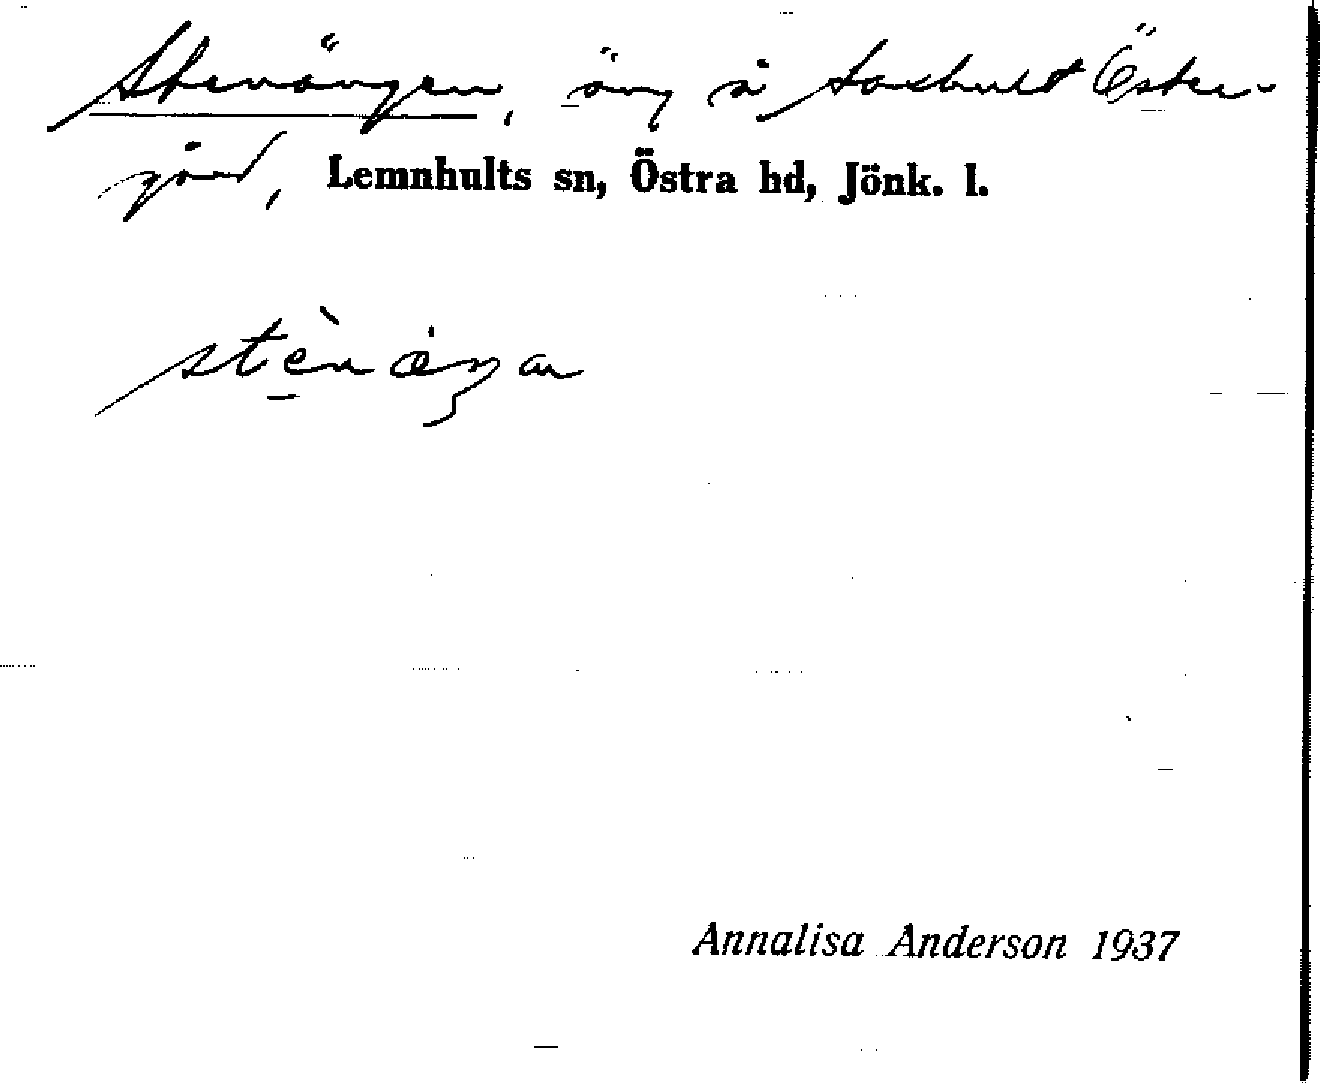 Stenängen, äng å Saxhult Öster-
gård, Lemnhults sn, Östra hd, Jönk. l.
stènäŋan
Annalisa Anderson 1937